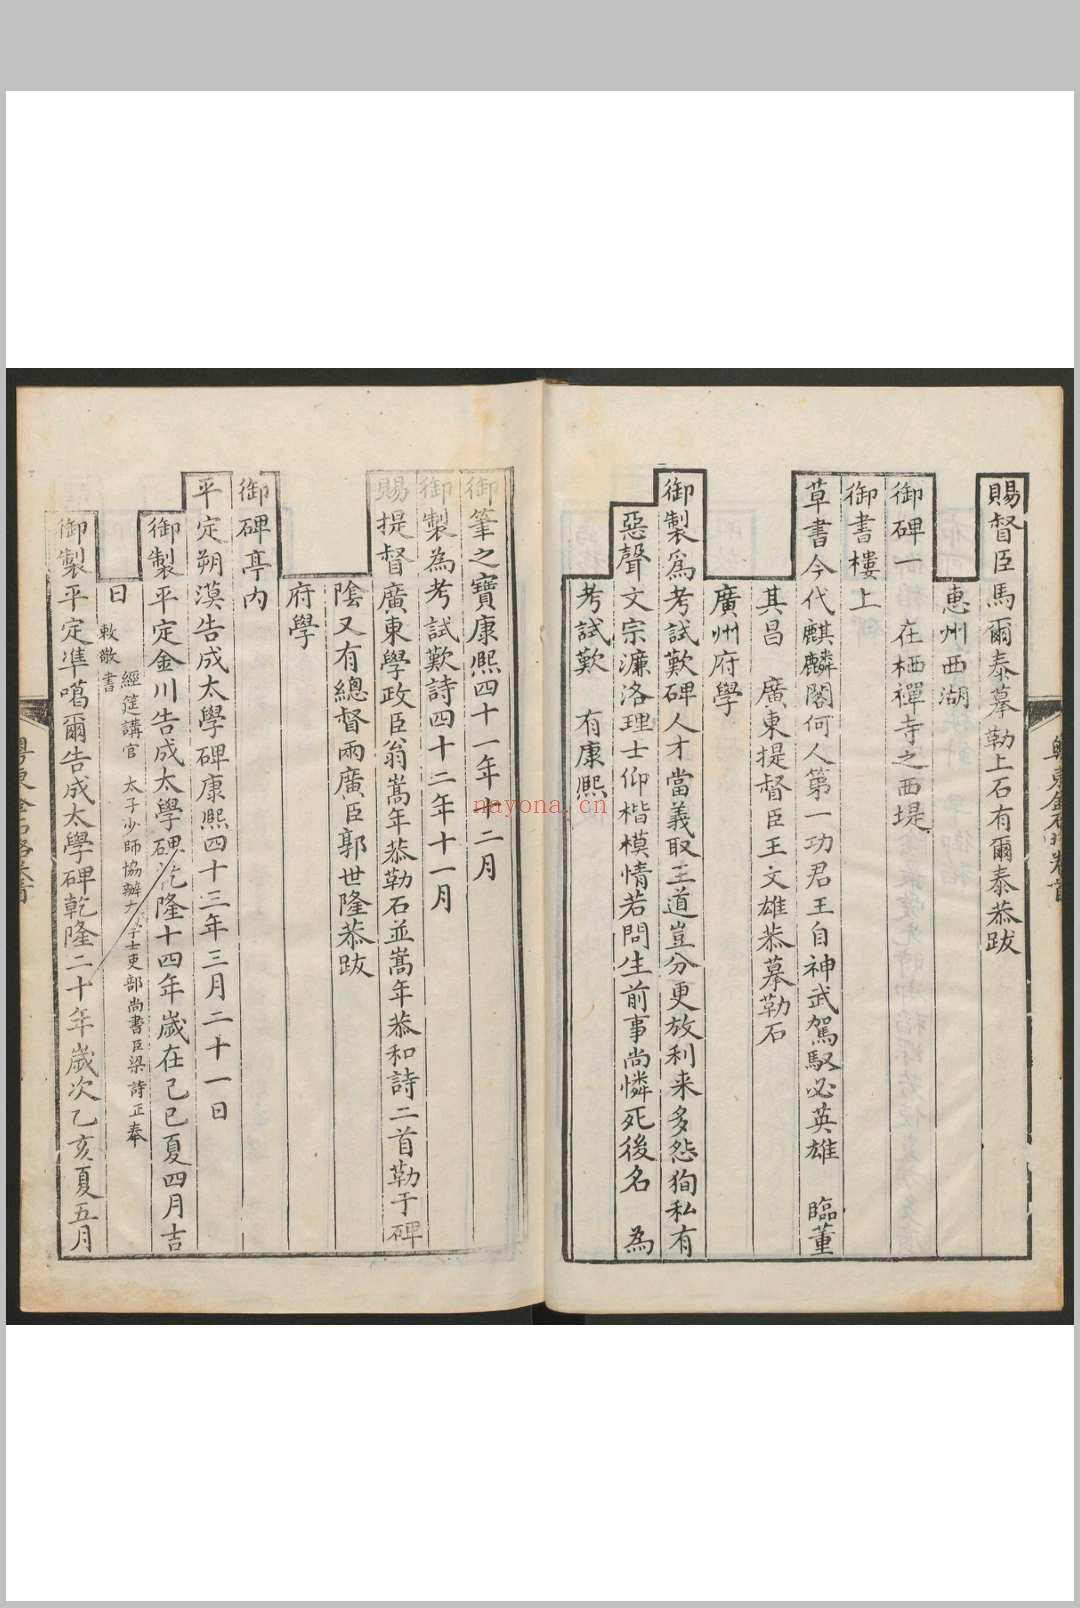 賜督臣馬爾泰摹勒上石有爾泰恭跋
惠州西湖
御碑一 在栖禪寺之西堤
御書樓上
草書今代麒麟閣何人第一功君王自神武駕馭必英雄 臨董
其昌 廣東提督臣王文雄恭摹勒石
廣州府學
御製爲考試歎碑人才當義取王道豈分更放利来多怨狥私有
惡聲文宗濂洛理士仰楷模情若問生前事尚憐死後名 為
考試歎 有康熙
御筆之寶康熙四十一年十二月
御製為考試歎詩四十二年十一月
賜提督廣東學政臣翁嵩年恭勒石並嵩年恭和詩二首勒于碑
陰又有總督兩廣臣郭世隆恭跋
府學
御碑亭内
平定朔漠告成太學碑康熙四十三年三月二十一日
御製平定金川告成太學碑乾隆十四年歲在己巳夏四月吉
日 經筵講官 太子少師協辦大學士吏部尚書臣梁詩正奉
敕敬書
御製平定準噶爾告成太學碑乾隆二十年歲次乙亥夏五月
粤東金石略卷首
nayona.cn